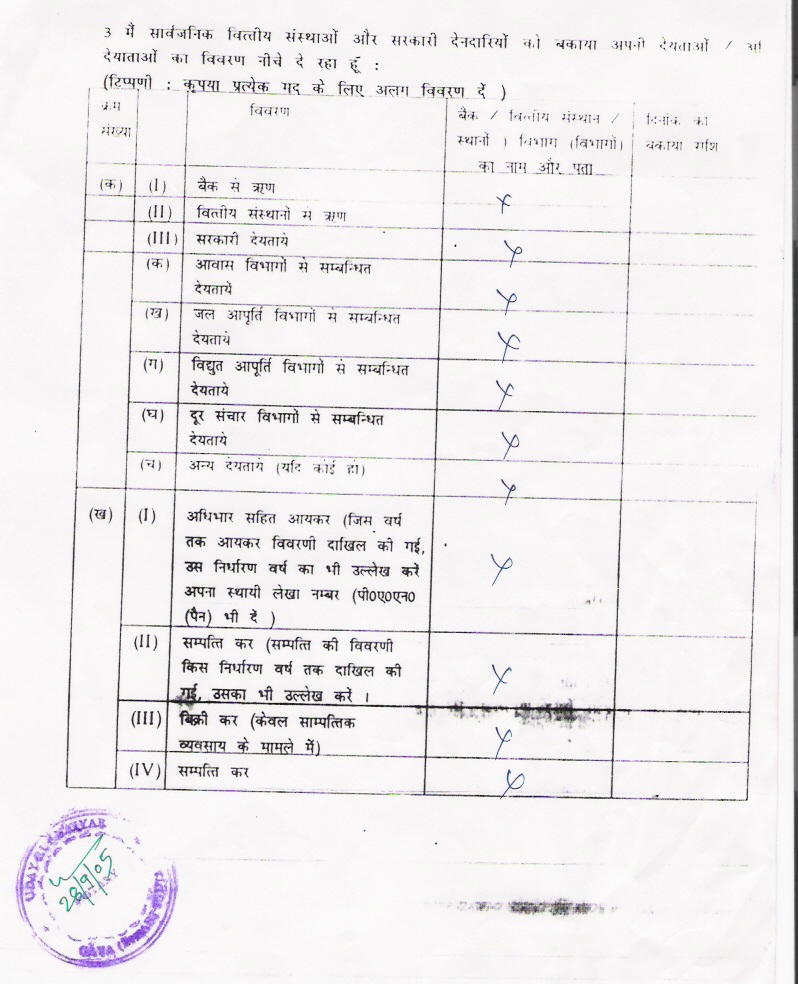 3 मैं सार्वजनिक वित्तीय संस्थाओं और सरकारी देनदारियों को बकाया अपनी देयताओं /
देयाताओं का विवरण नीचे दे रहा हूँ :
(टिप्पणी : कृपया प्रत्येक मद के लिए अलग विवरण दें )
क्रम संख्या विवरण बैंक / वित्तीय संस्थान / स्थानों । विभाग (विभागों) का नाम और पता दिनांक का बकाया राशि
(क) (I) बैक से ऋण x
(II) वित्तीय संस्थानों से ऋण
(III) सरकारी देयताये x
(क) आवास विभागों से सम्बन्धित
देयतायें x
(ख) जल आपूर्ति विभागों से सम्बन्धित
देयताये x
(ग) विद्युत आपूर्ति विभागों से सम्बन्धित
देयताये x
(घ) दूर संचार विभागों से सम्बन्धित
देयताये x
(च) अन्य देयताये (यदि कोई हो) x
(ख) (I) अधिभार सहित आयकर (जिस वर्ष
तक आयकर विवरणी दाखिल की गई,
उस निर्धारण वर्ष का भी उल्लेख करें x
अपना स्थायी लेखा नम्बर (पी0ए0एन0
(पैन) भी दें )
(II) सम्पत्ति कर (सम्पत्ति की विवरणी
किस निर्धारण वर्ष तक दाखिल की x
गई, उसका भी उल्लेख करें ।
(III) बिक्री कर (केवल साम्पत्तिक
व्यवसाय के मामले में) x
(IV) सम्पत्ति कर x
28/9/05
GAYA